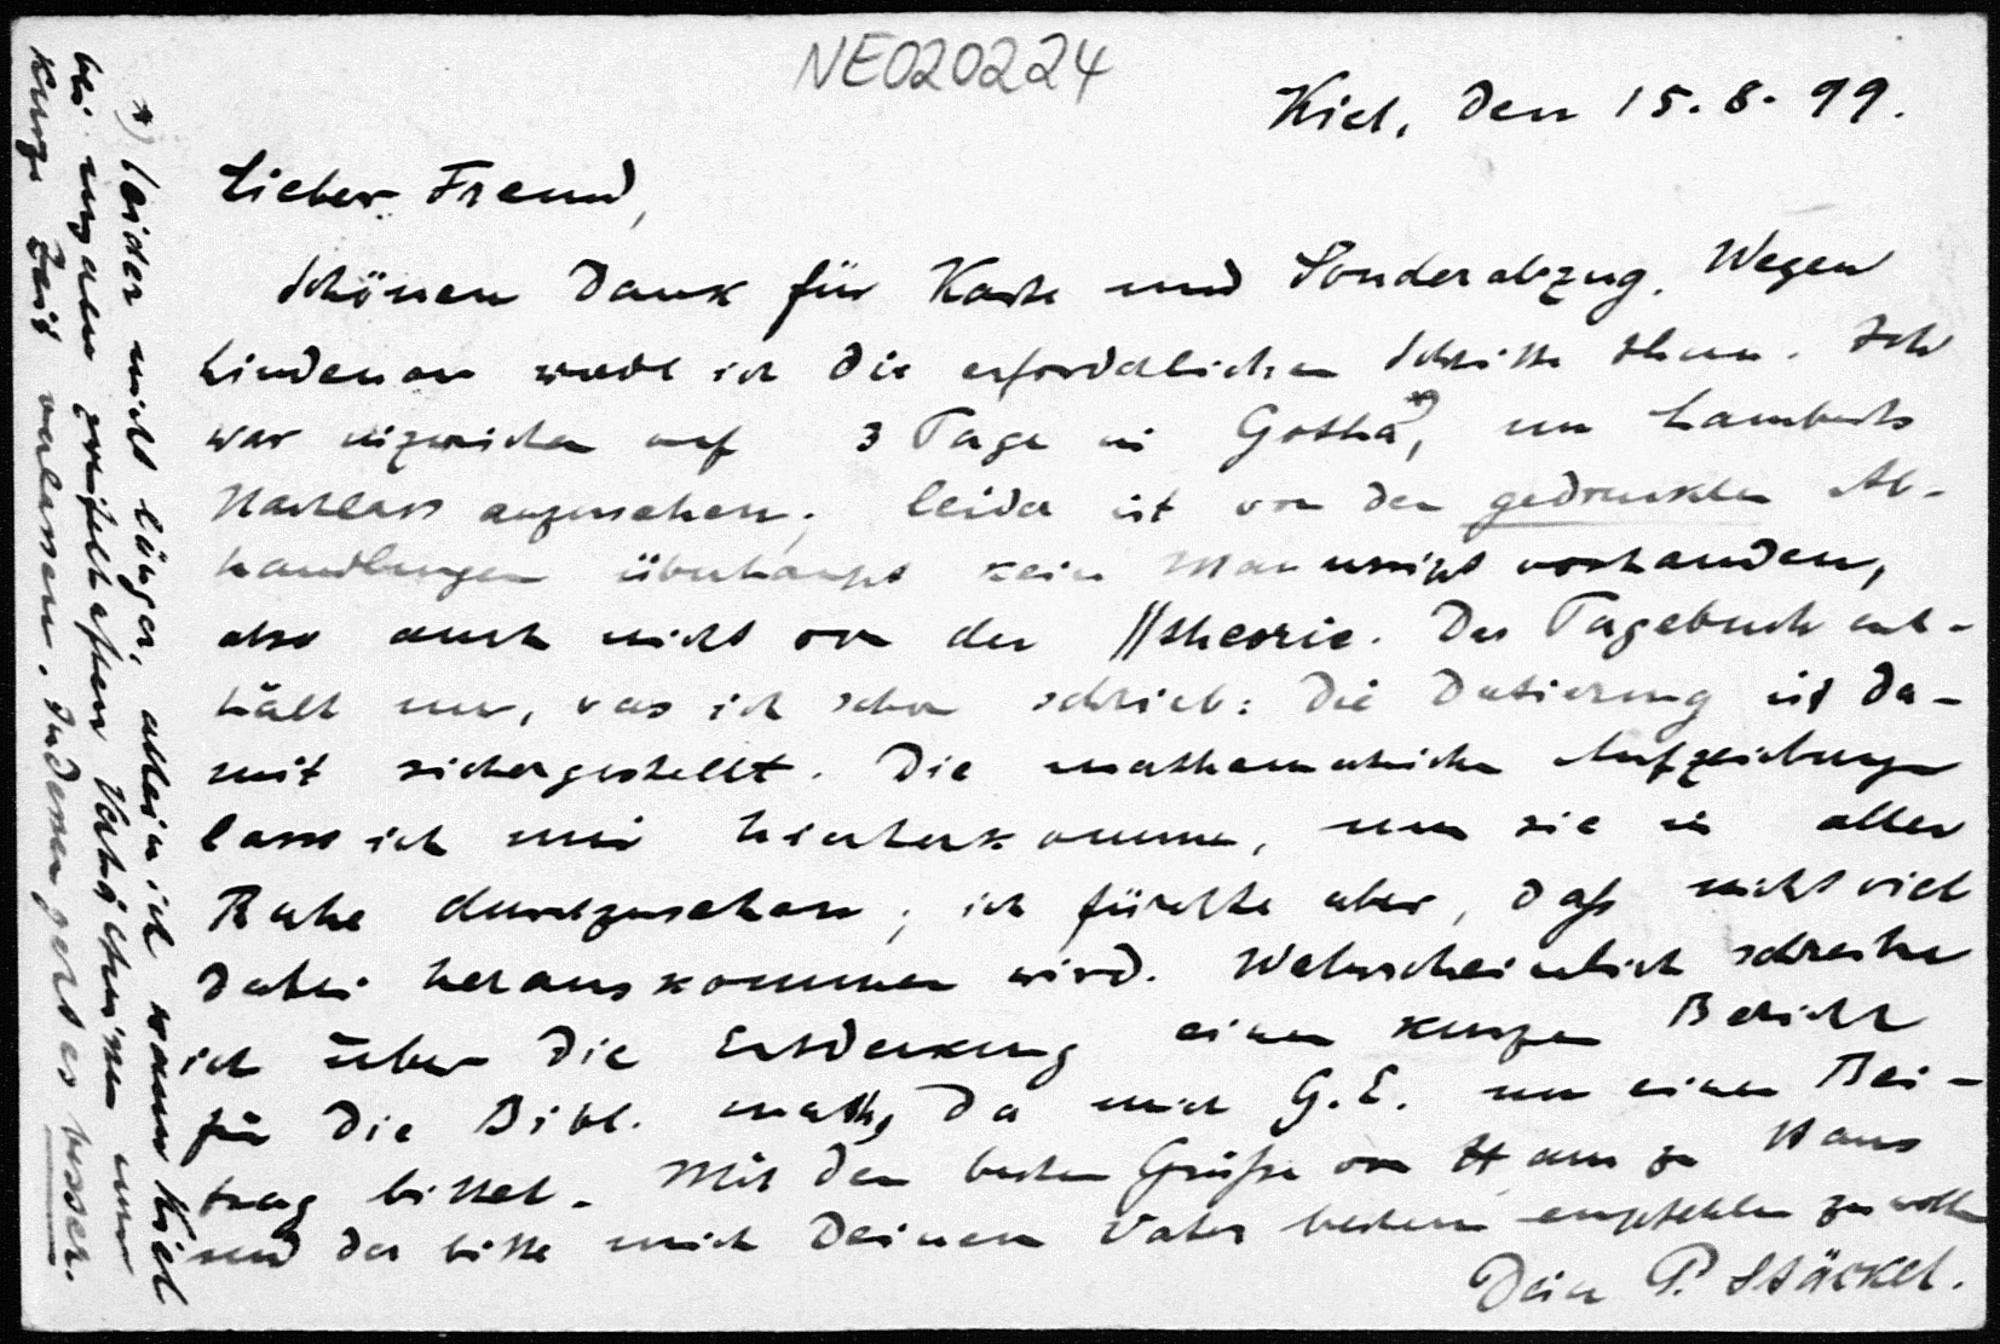 NE020224
Kiel, den 15.8.99.
Lieber Freund,
Schönen Dank für Karte und Sonderabzug. Wegen
Lindenau werde ich die erforderlichen Schritte thun. Ich
war inzwischen auf 3 Tage in Gotha*), um Lamberts
Nachlass anzusehen; leider ist von den gedruckten Ab-
handlungen überhaupt kein Manuscript vorhanden,
also auch nicht von der ||theorie. Das Tagebuch ent-
hält nur, was ich schon schrieb: Die Datierung ist da-
mit sichergestellt. Die mathematischen Aufzeichnungen
lasse ich mir hierherkommen, um sie in aller
Ruhe durchzusehen; ich fürchte aber, daß nicht viel
dabei herauskommen wird. Wahrscheinlich schreibe
ich über die Entdeckung einen kurzen Bericht
für die Bibl. math., da mich G.E. um einen Bei-
trag bittet. Mit den besten Grüßen von Haus zu Haus
und der Bitte mich Deinem Vater bestens empfehlen zu wollen
Dein P. Stäckel.
*) leider nicht länger, allein ich kann Kiel
bei unseren Verhältnissen nur
kurze Zeit verlassen. Indessen geht es besser.